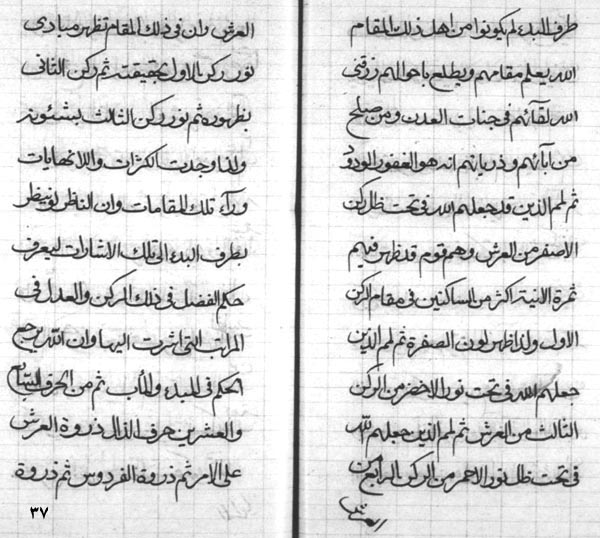 طرف البدء لم يكونوا من اهل ذلك المقام
الله يعلم مقامهم ويطلع باحوالهم رزقني
الله لقائهم في جنات العدن ومن صلح
من آبائهم وذرياتهم انه هو الغفور الودود
ثم لهم الذين قد جعلهم الله في تحت ظل ركن
الاصفر من العرش وهم قوم قد ظهر فيهم
ثمرة الانية اكثر من الساكنين في مقام الركن
الاول ولذا ظهر لون الصفرة ثم لهم الذين
جعلهم الله في تحت نور الاخضر من الركن
الثالث من العرش ثم لهم الذين جعلهم الله
في تحت ظل نور الاحمر من الركن الرابع من
العرش
العرش وان في ذلك المقام تظهر مبادى
نور ركن الاول بحقيقته ثم ركن الثاني
بظهوره ثم نور ركن الثالث بشئونه
ولذا وجدت الكثرات واللانهايات
ورآء تلك المقامات وان الناظر لو ينظر
بطرف البدء الى تلك الاشارات ليعرف
حكم الفضل في ذلك الركن والعدل في
المراتب التي اشرت اليها وان الله يرجع
الحكم في المبدء والمآب ثم من الحرف السابع
والعشرين حرف الذال ذروة العرش
على الامر ثم ذروة الفردوس ثم ذروة
٣٧